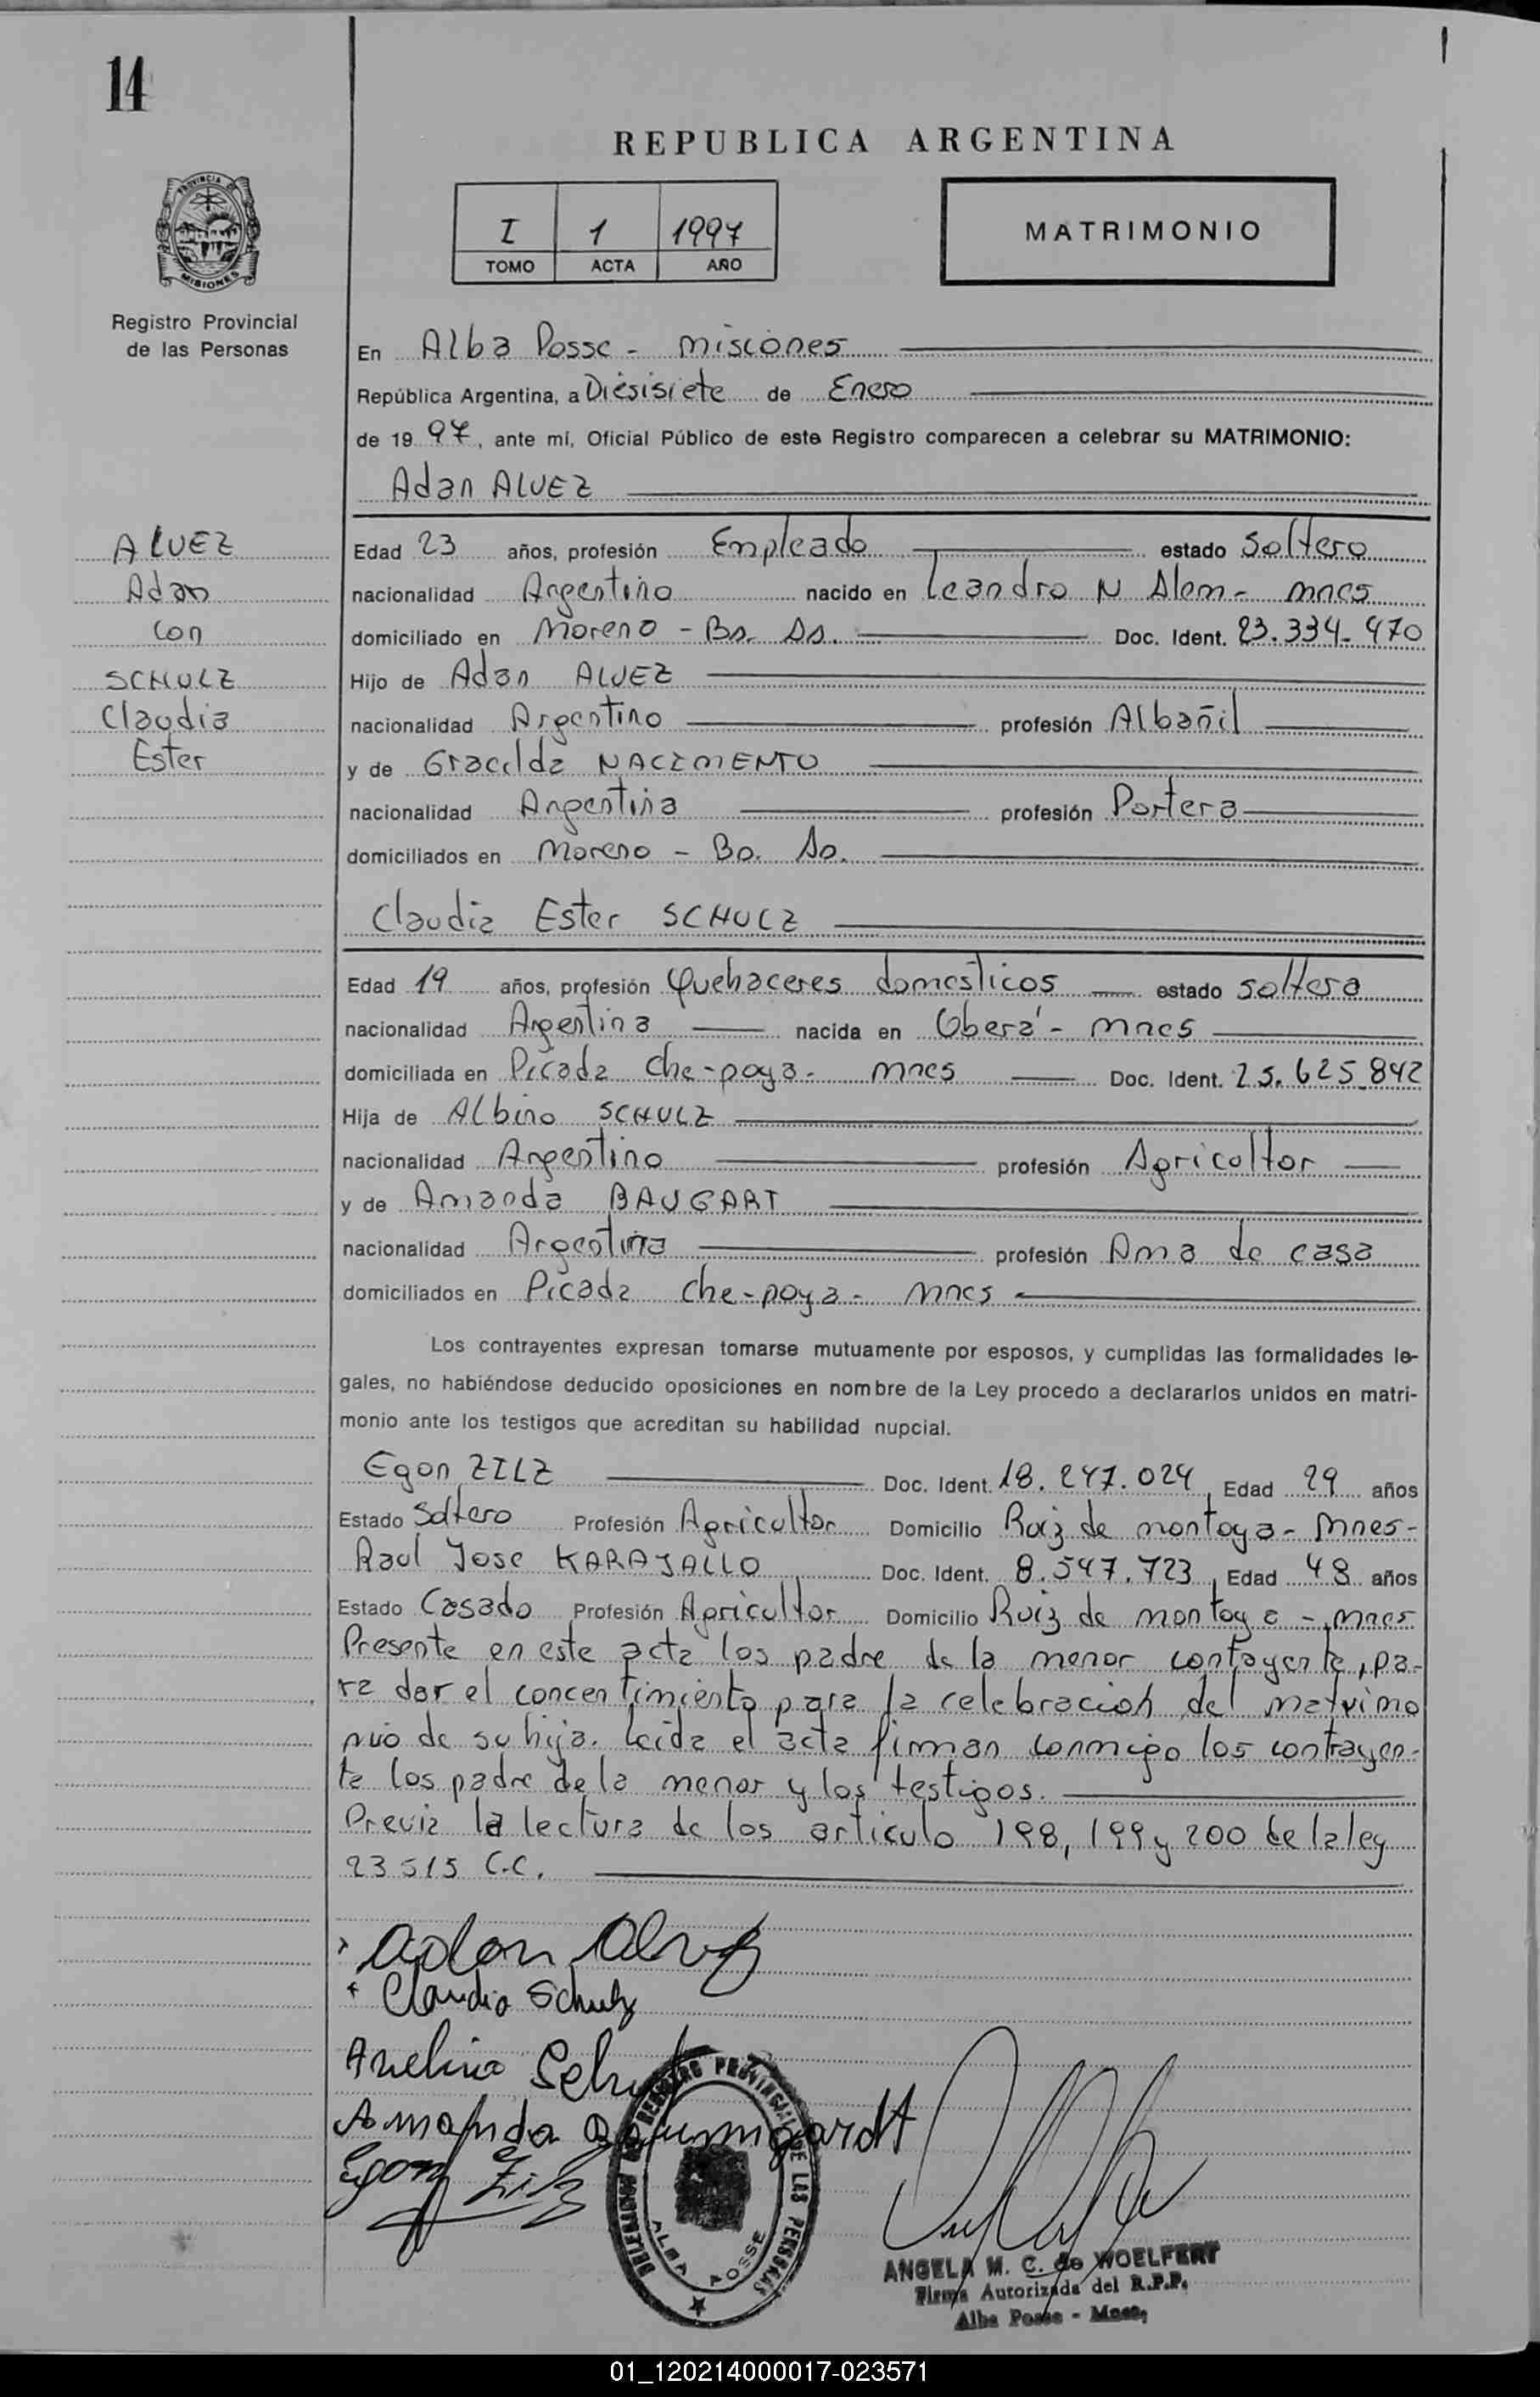 14
REPUBLICA ARGENTINA
PROVINCIA DE
MISIONES
I 1 1997
TOMO ACTA AÑO
MATRIMONIO
Registro Provincial
de las Personas
En Alba Posse - Misiones
República Argentina, a Diesisiete de Enero
de 19 97, ante mí, Oficial Público de este Registro comparecen a celebrar su MATRIMONIO:
Adan ALVEZ
ALVEZ
Adan
Con
SCHULZ
Claudia
Ester
Edad 23 años, profesión Empleado estado Soltero
nacionalidad Argentino nacido en Leandro N Alem - Mnes
domiciliado en Moreno - Bs. As. Doc. Ident. 23.334.970
Hijo de Adan ALVEZ
nacionalidad Argentino profesión Albañil
y de Gracilda NACIMENTO
nacionalidad Argentina profesión Portera
domiciliados en Moreno - Bs. As.
Claudia Ester SCHULZ
Edad 19 años, profesión Quehaceres domesticos estado soltera
nacionalidad Argentina nacida en Oberá - Mnes
domiciliada en Picada Che-poya - Mnes Doc. Ident. 25.625.842
Hija de Albino SCHULZ
nacionalidad Argentino profesión Agricultor
y de Amanda BAUGART
nacionalidad Argentina profesión Ama de casa
domiciliados en Picada Che-poya - Mnes
Los contrayentes expresan tomarse mutuamente por esposos, y cumplidas las formalidades le-
gales, no habiéndose deducido oposiciones en nombre de la Ley procedo a declararlos unidos en matri-
monio ante los testigos que acreditan su habilidad nupcial.
Egon ZILZ Doc. Ident. 18.247.024, Edad 29 años
Estado Soltero Profesión Agricultor Domicilio Ruiz de montoya - Mnes -
Raul Jose KARAJALLO Doc. Ident. 8.547.723, Edad 48 años
Estado Casado Profesión Agricultor Domicilio Ruiz de montoya - Mnes
Presente en este acta los padre de la menor contayente, pa-
ra dar el concentimiento para la celebracion del matrimo
nio de su hija. Leida el acta firman conmigo los contrayen-
te los padre de la menor y los testigos.
Previa la lectura de los articulo 198, 199 y 200 de la ley
23515 C.C.
Adan Alvez
Claudia Schulz
Amanda Baumgardt
Egon Zilz
DELEGACION DEL REGISTRO PROVINCIAL DE LAS PERSONAS
ALBA POSSE
ANGELA M. C. de WOELFERT
Firma Autorizada del R.P.P.
Alba Posse - Mnes.
01_120214000017-023571